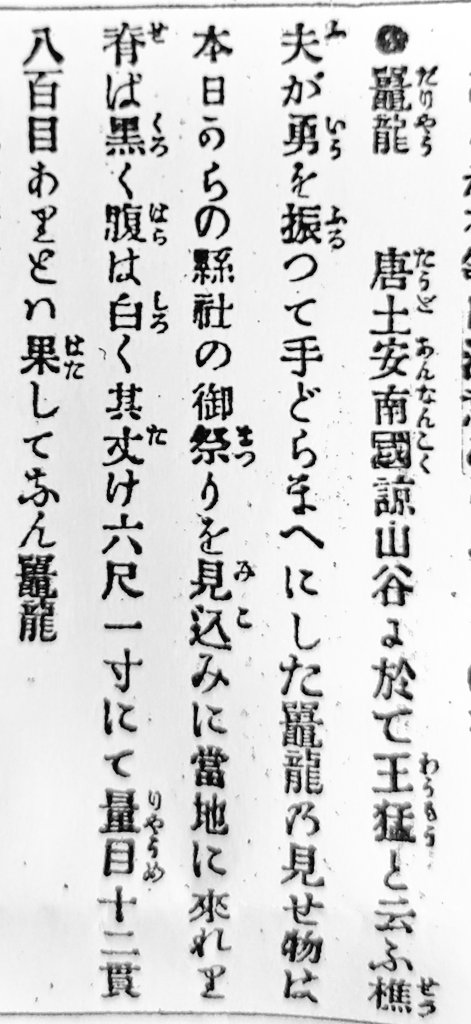 ●鼉龍　唐土安南國諒山谷よ於て王猛と云ふ樵
夫が勇を振つて手どらまへにした鼉龍乃見せ物は
本日のちの縣社の御祭りを見込みに當地に來れり
脊は黒く腹は白く其丈け六尺一寸にて量目十二貫
八百目ありとハ果してなん鼉龍